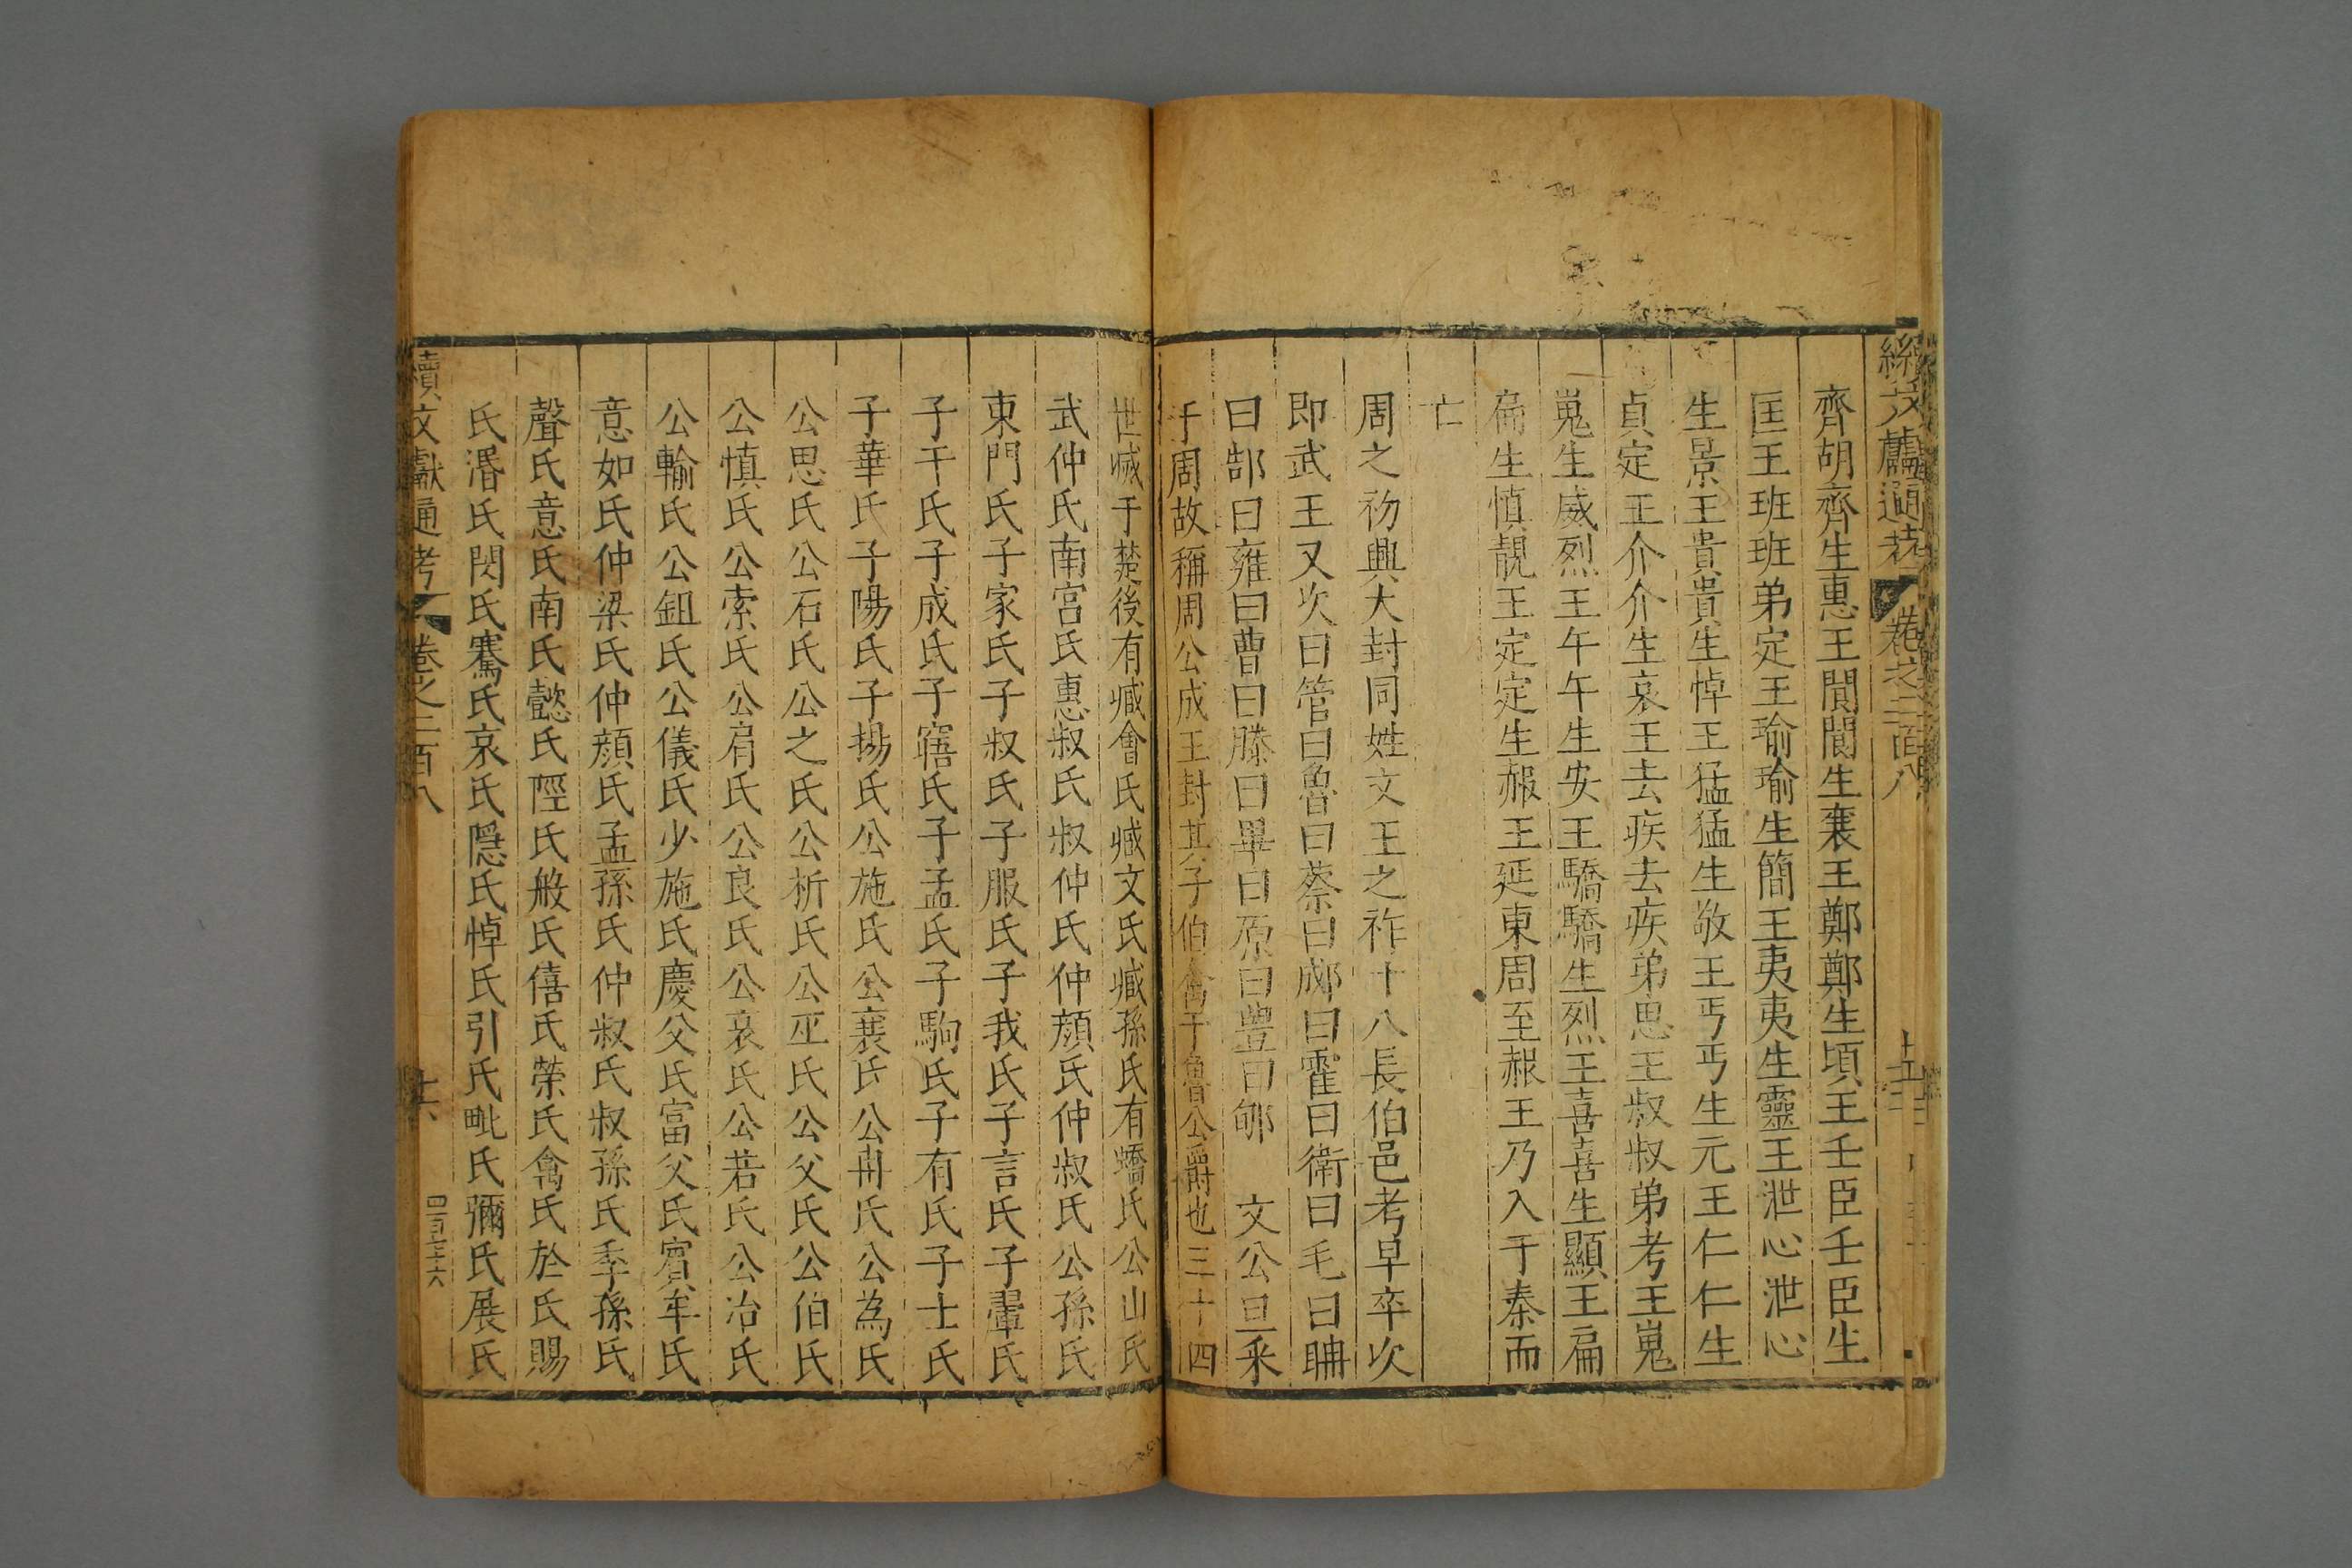 續文獻通考 卷之二百八 十五
齊胡齊生惠王閬閬生襄王鄭鄭生頃王壬臣壬臣生
匡王班班弟定王瑜瑜生簡王夷夷生靈王泄心泄心
生景王貴貴生悼王猛猛生敬王丐丐生元王仁仁生
貞定王介介生哀王去疾去疾弟思王叔叔弟考王嵬
嵬生威烈王午午生安王驕驕生烈王喜喜生顯王扁
扁生慎靚王定定生赧王延東周至赧王乃入于秦而
亡
周之初興大封同姓文王之祚十八長伯邑考早卒次
即武王又次曰管曰魯曰蔡曰郕曰霍曰衛曰毛曰聃
曰郜曰雍曰曹曰滕曰畢曰原曰豐曰郇 文公旦采
于周故稱周公成王封其子伯禽于魯公爵也三十四
世滅于楚後有臧會氏臧文氏臧孫氏有蟜氏公山氏
武仲氏南宮氏惠叔氏叔仲氏仲顏氏仲叔氏公孫氏
東門氏子家氏子叔氏子服氏子我氏子言氏子鞏氏
子干氏子成氏子寤氏子孟氏子駒氏子有氏子士氏
子華氏子陽氏子揚氏公施氏公襄氏公冉氏公為氏
公思氏公石氏公之氏公析氏公巫氏公父氏公伯氏
公慎氏公索氏公肩氏公良氏公哀氏公若氏公冶氏
公輸氏公鉏氏公儀氏少施氏慶父氏富父氏賓牟氏
意如氏仲梁氏仲顏氏孟孫氏仲叔氏叔孫氏季孫氏
聲氏意氏南氏懿氏陘氏般氏僖氏榮氏禽氏於氏賜
氏湣氏閔氏騫氏哀氏隱氏悼氏引氏毗氏彌氏展氏
續文獻通考 卷之二百八 十六 四百三十六